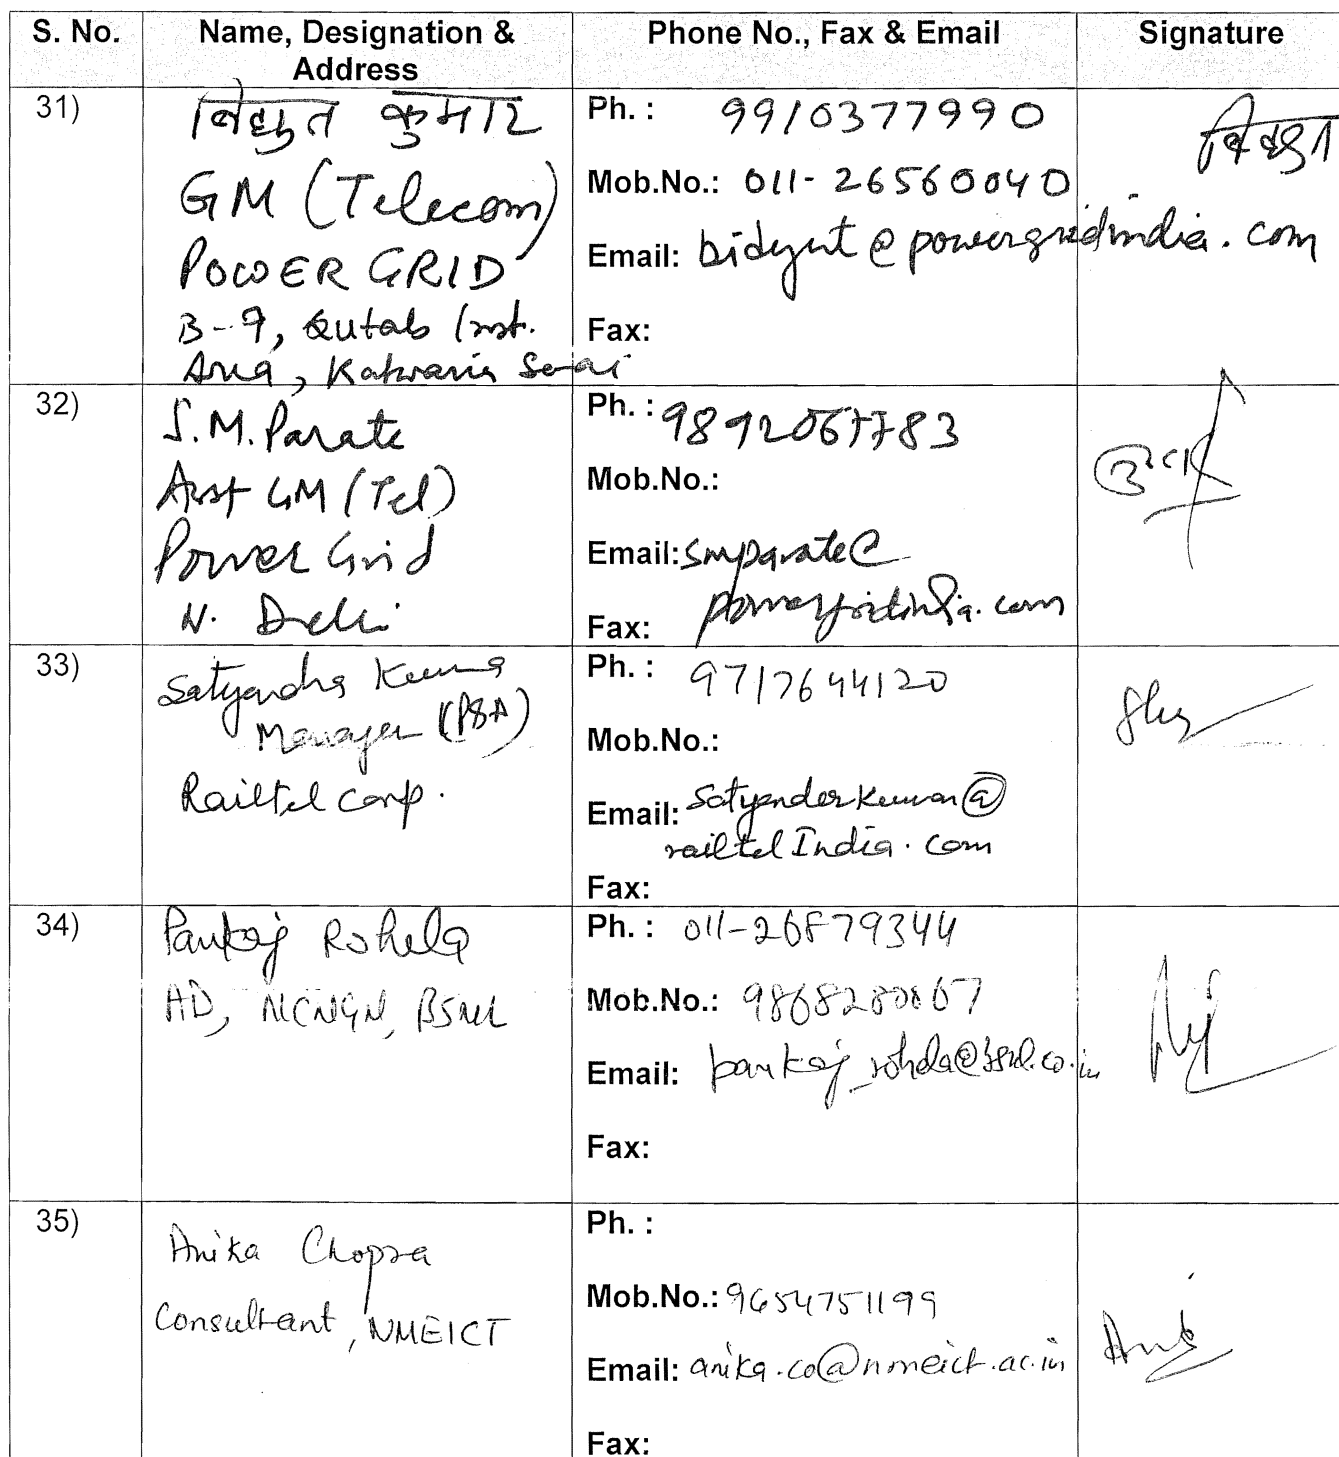 S. No. Name, Designation & Address Phone No., Fax & Email Signature
31)
विद्युत कुमार
GM (Telecom)
POWER GRID
B-9, Qutab Inst.
Area, Katwaria Sarai
Ph. : 9910377990
Mob.No.: 011-26560040
Email: bidyut@powergridindia.com
Fax:
विद्युत
32)
S.M. Parate
Asst GM (Tel)
Power Grid
N. Delhi
Ph. : 9892067783
Mob.No.:
Email: smparate@
powergridindia.com
Fax:
33)
Satyendra Kumar
Manager
Railtel Corp.
Ph. : 9717644120
Mob.No.:
Email: Satyenderkumar@
railtelIndia.com
Fax:
34)
Pankaj Rohela
AD, NCNGN, BSNL
Ph. : 011-26879344
Mob.No.: 9868280067
Email: pankaj_rohela@bsnl.co.in
Fax:
35)
Anika Chopra
Consultant, NMEICT
Ph. :
Mob.No.: 9654751199
Email: anika.co@nmeict.ac.in
Fax: